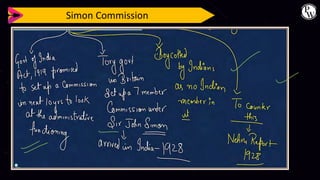 Simon Commission
Govt of India
Act, 1919 promised
to set up a Commission
in next 10yrs to look
at the administrative
functioning
Tory govt
in Britain
Set up a 7 member
Commission under
Sir John Simon
arrived in India-1928
Boycotted
by Indians
as no Indian
member in
it
To counter
this
Nehru Report
1928